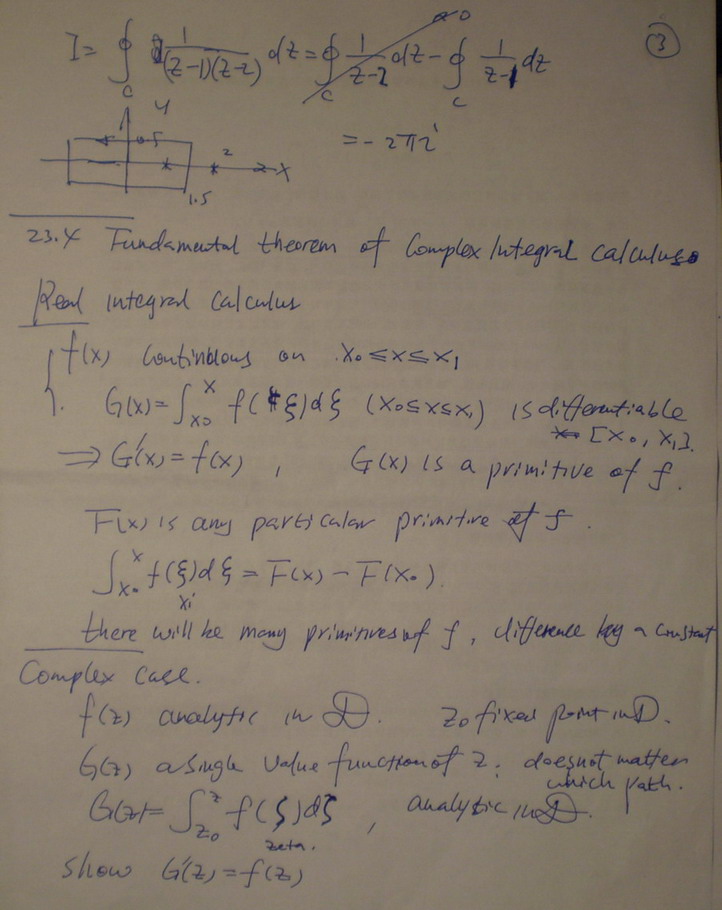 I = ∮_C 1/((z-1)(z-2)) dz = ∮_C 1/(z-2) dz - ∮_C 1/(z-1) dz
0
③
= -2πi
y
.5
2
x
1.5
23.4 Fundamental theorem of Complex Integral calculus
Real integral calculus
f(x) continuous on x₀ ≤ x ≤ x₁
G(x) = ∫_{x₀}^{x} f(ξ)dξ (x₀ ≤ x ≤ x₁) is differentiable
[x₀, x₁].
⇒ G'(x) = f(x), G(x) is a primitive of f.
F(x) is any particular primitive of f.
∫_{x₀}^{x} f(ξ)dξ = F(x) - F(x₀).
xi
there will be many primitives of f, difference by a constant
Complex case.
f(z) analytic in D. z₀ fixed point in D.
G(z) a single value function of z. does not matter
which path.
G(z) = ∫_{z₀}^{z} f(ζ)dζ, analytic in D.
zeta.
show G'(z) = f(z)